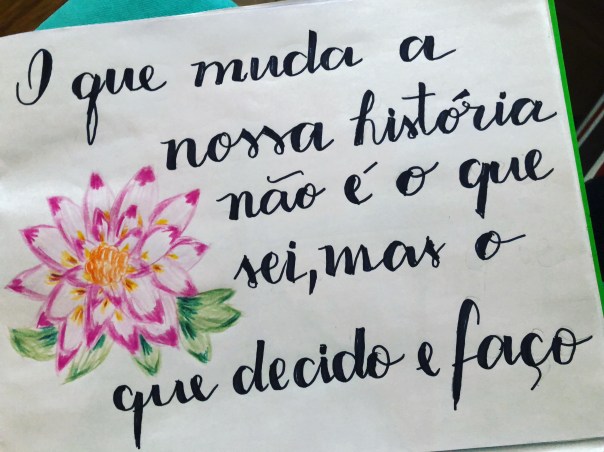 O que muda a
nossa história
não é o que
sei, mas o
que decido e faço